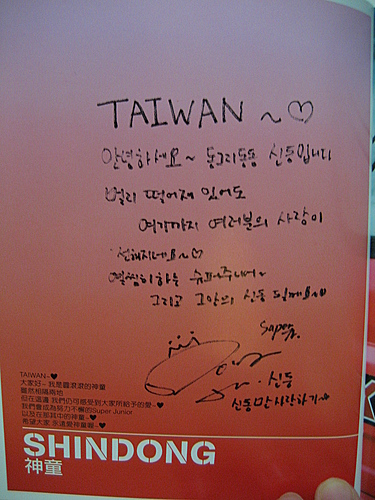 TAIWAN ~ ♡
안녕하세요~ 동그리동동 신동입니다
멀리 떨어져 있어도
여기까지 여러분의 사랑이
전해지네요~♡
열씸히하는 슈퍼주니어~
그리고 그안의 신동 될께요~
Super Jr. 신동
신동만 사랑하기~
TAIWAN~♥
大家好~ 我是圓滾滾的神童
雖然相隔兩地
但在這邊 我們仍可感受到大家所給予的愛~♥
我們會成為努力不懈的Super Junior
以及在那其中的神童~♥
希望大家 永遠愛神童喔~♥
SHINDONG
神童